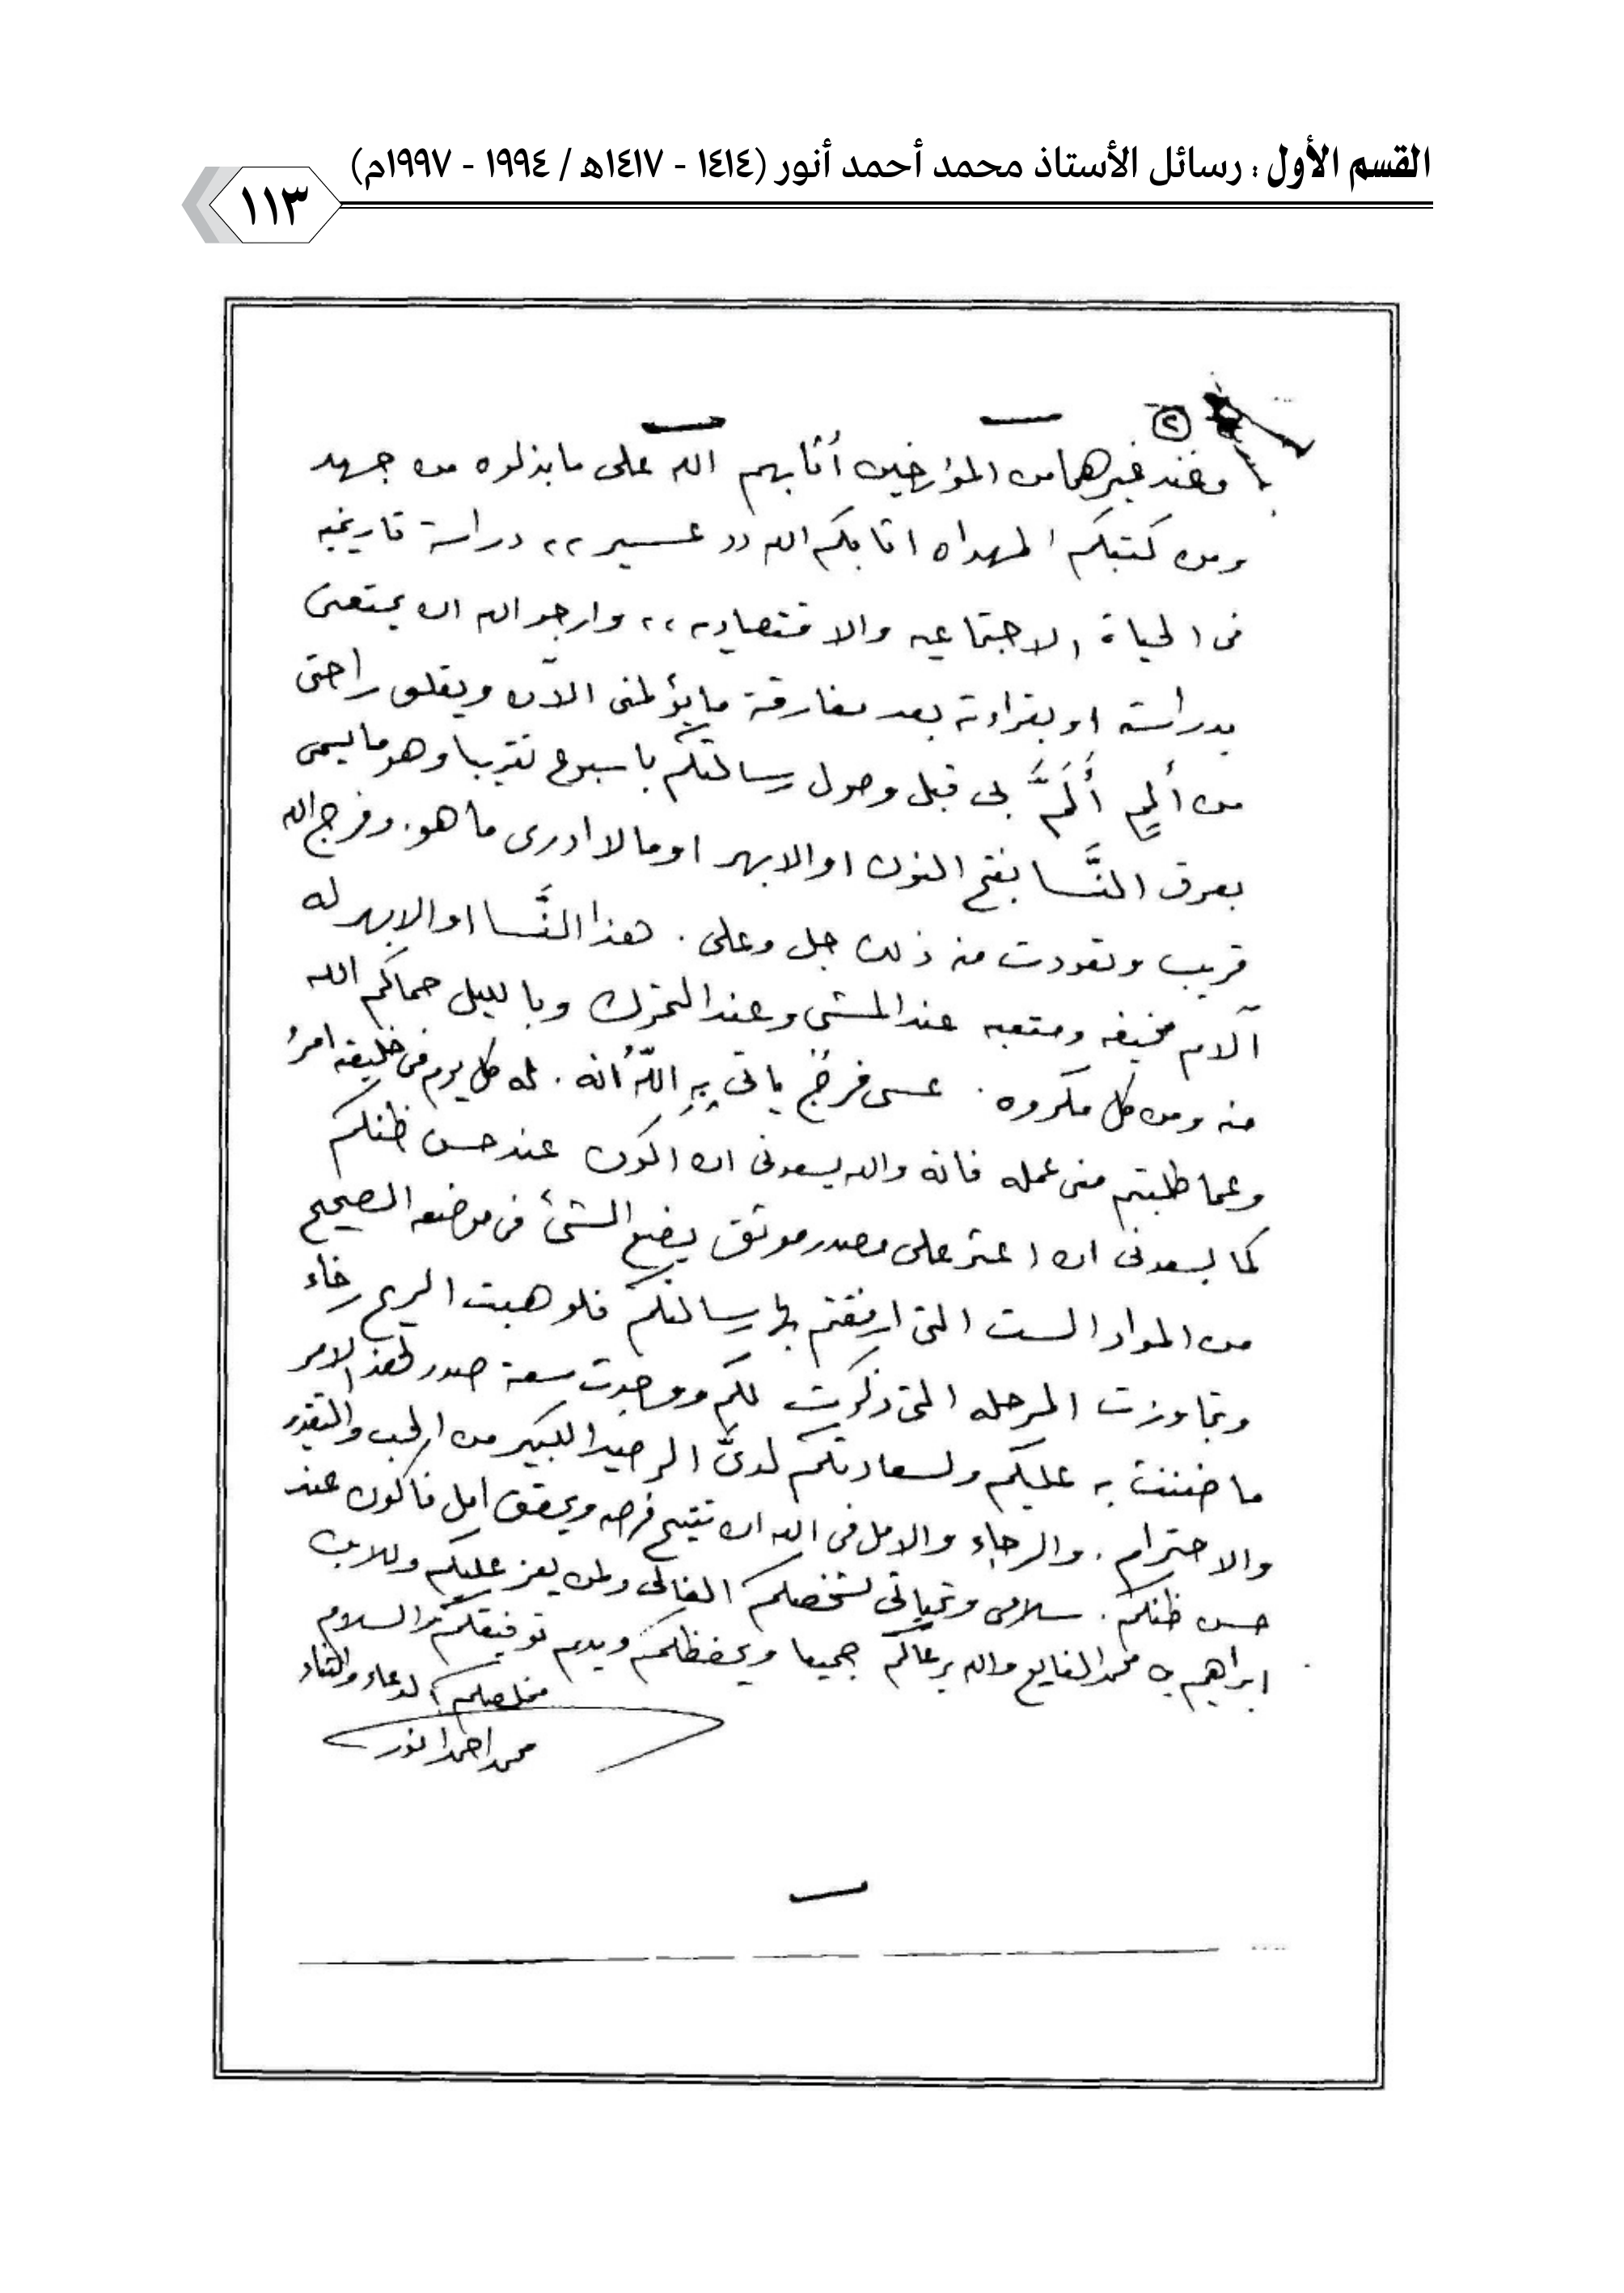 القسم الأول : رسائل الأستاذ محمد أحمد أنور (١٤١٤ - ١٤١٧هـ / ١٩٩٤ - ١٩٩٧م)
١١٣
٢
وعند غيرهما من المؤرخين أثابهم الله على ما بذلوه من جهد
ومن كتبكم المهداه اثابكم الله ,, عسير ,, دراسة تاريخيه
فى الحياة الاجتماعيه والاقتصاديه ,, وارجو الله ان يمتعنى
بدراسته او بقراءته بعد مفارقة ما يؤلمنى الآن ويقلق راحتى
من ألمٍ أَلَمَّ بى قبل وصول رسالتكم باسبوع تقريبا وهو ما يسمى
بعرق النَّسا بفتح النون او الابهر او ما لا ادرى ما هو. وفرج الله
قريب وتعودت منه ذلك جل وعلى . هذا النَّسا او الابهر له
آلام مخيفه ومتعبه عند المشى وعند التحرك وبالليل حماكم الله
منه ومن كل مكروه . عسى فرجٌ ياتى بِهِ اللهُ انه . له كل يوم فى خليقته امرُ
وعما طلبتم منى عمله فانه والله يسعدنى ان اكون عند حسن ظنكم
كما يسعدنى ان اعثر على مصدر موثق يضع الشئ فى موضعه الصحيح
من المواد الست التى ارفقتم بها رسالتكم فلو هبت الريح رخاء
وتجاوزت المرحله التى ذكرت لكم ووجدت سعة صدر لهذا الامر
ما ضننت به عليكم ولسعادتكم لدىَّ الرصيد الكبير من الحب والتقدير
والاحترام . والرجاء والامل فى الله ان تتيح فرصه ويحقق امل فاكون عند
حسن ظنكم . سلامى وتحياتى لشخصكم الغالى ولمن يعز عليكم وللابن
ابراهيم بن محمد الفايع والله يرعاكم جميعا ويحفظكم ويديم توفيقكم والسلام
مخلصكم الدعاء والثناء
محمد احمد انور